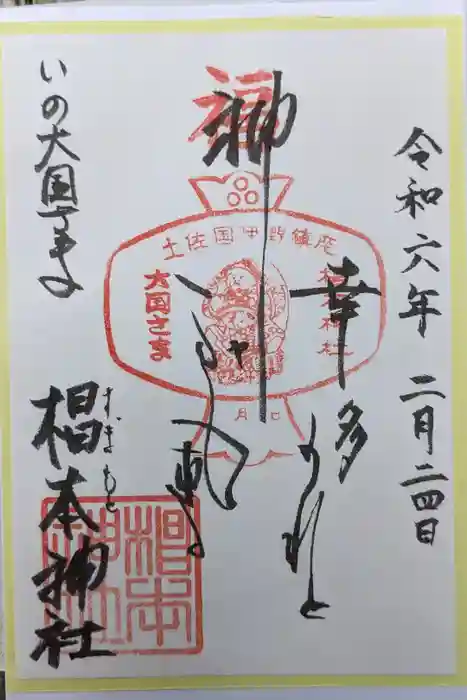 令和六年 二月二四日
幸多かれと
神
福
土佐国伊野鎮座
椙本神社
大国さま
月 日
いの大国さま
椙本神社
すぎもと
椙本神社